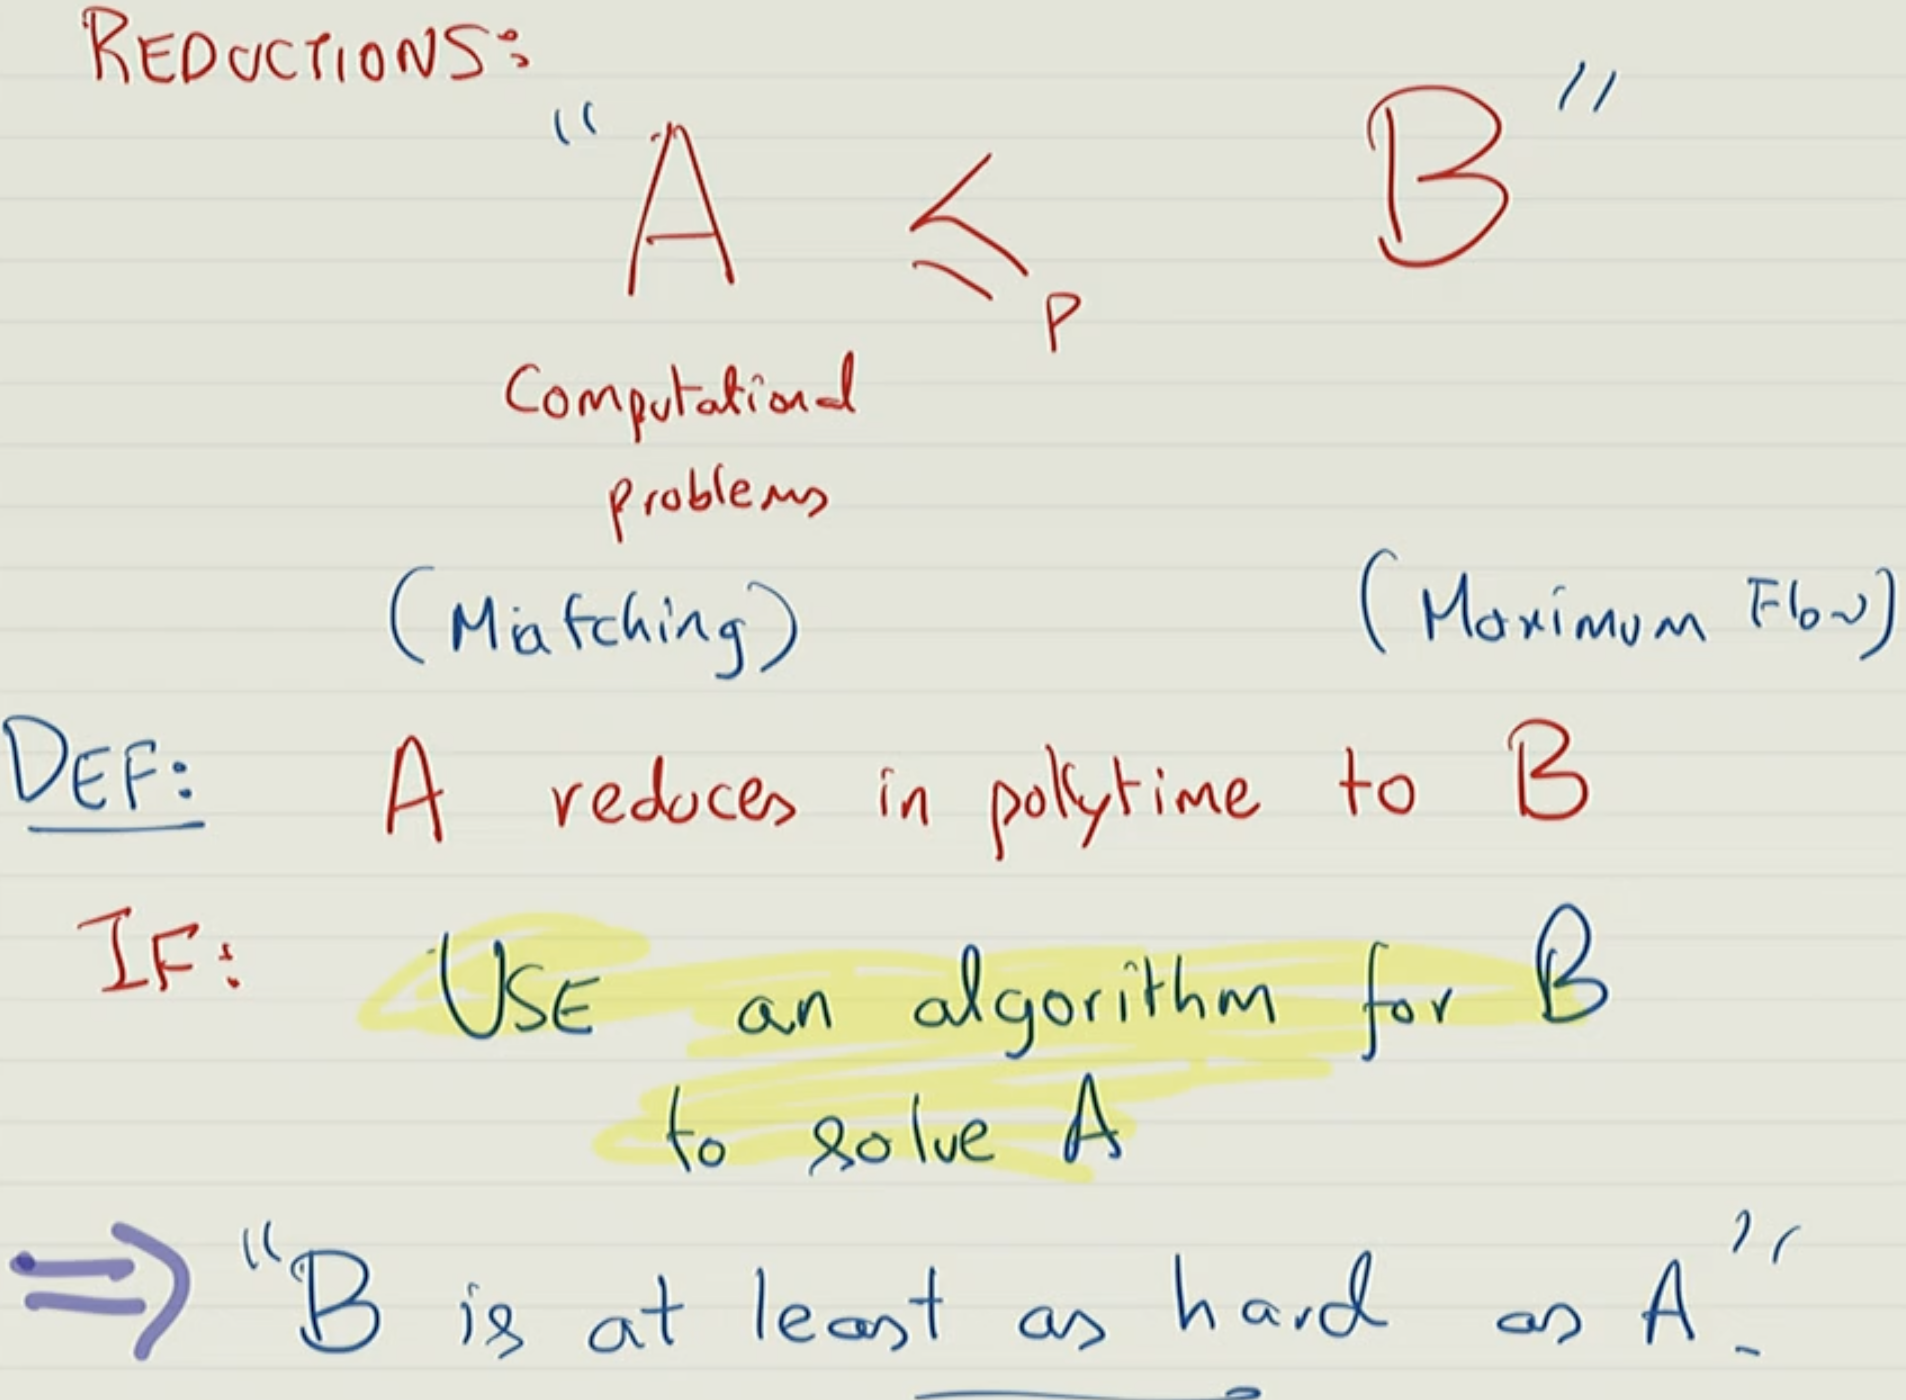 REDUCTIONS:
"A ≤p B"
Computational
problems
(Matching) (Maximum Flow)
DEF: A reduces in polytime to B
IF: USE an algorithm for B
to solve A
⇒ "B is at least as hard as A."